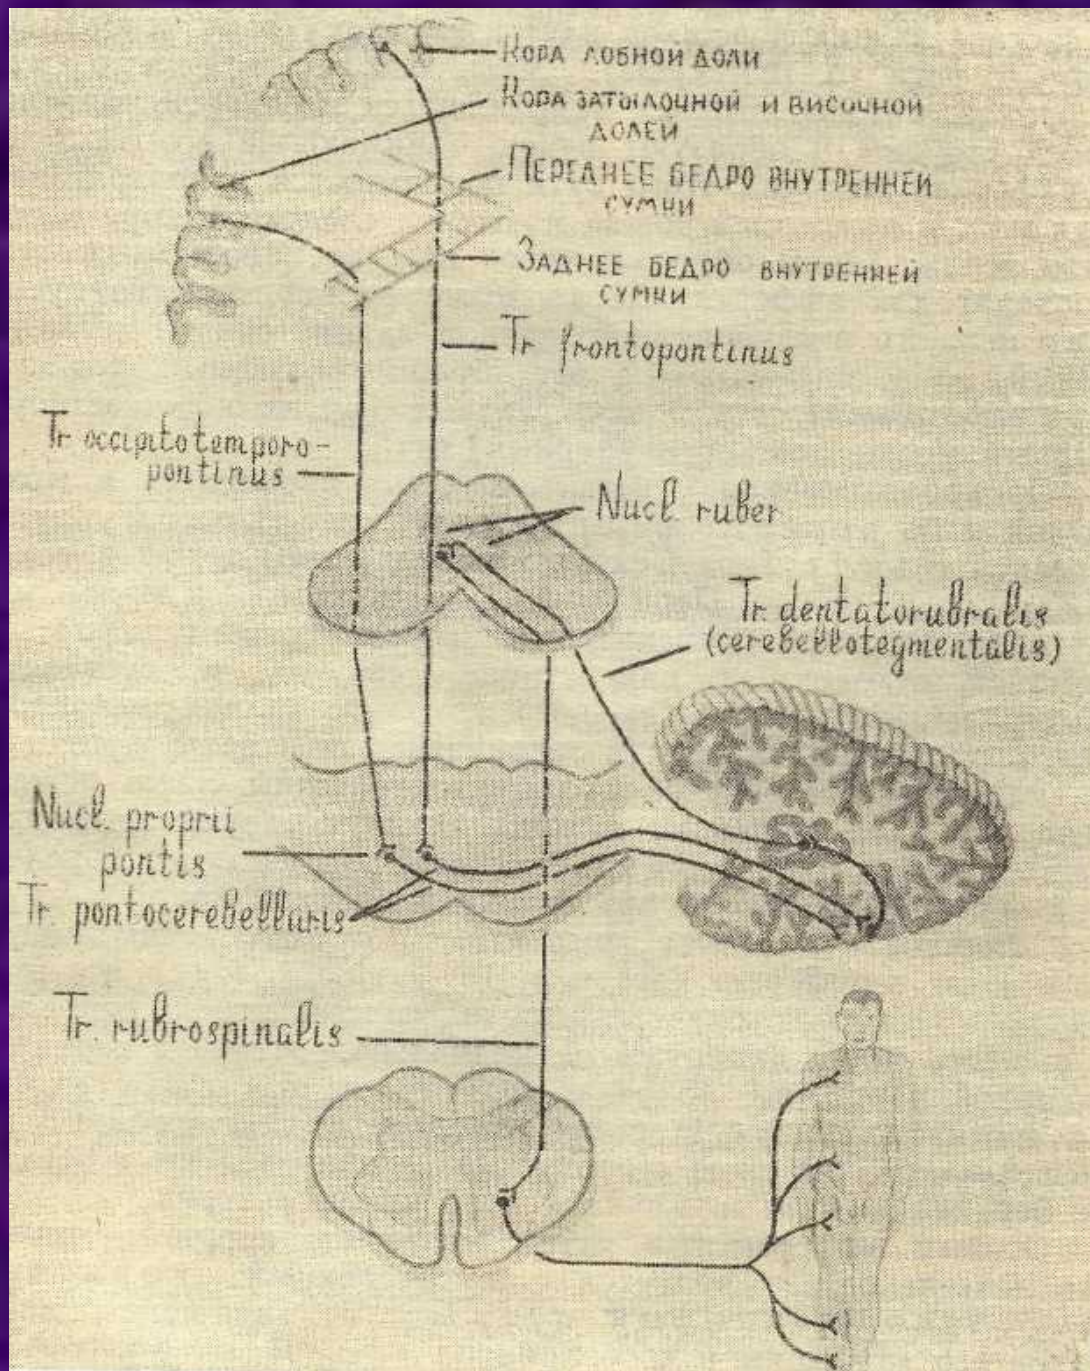 Кора лобной доли
Кора затылочной и височной
долей
Переднее бедро внутренней
сумки
Заднее бедро внутренней
сумки
Tr. frontopontinus
Tr. occipitotemporo-
pontinus
Nucl. ruber
Tr. dentatorubralis
(cerebellotegmentalis)
Nucl. proprii
pontis
Tr. pontocerebellaris
Tr. rubrospinalis